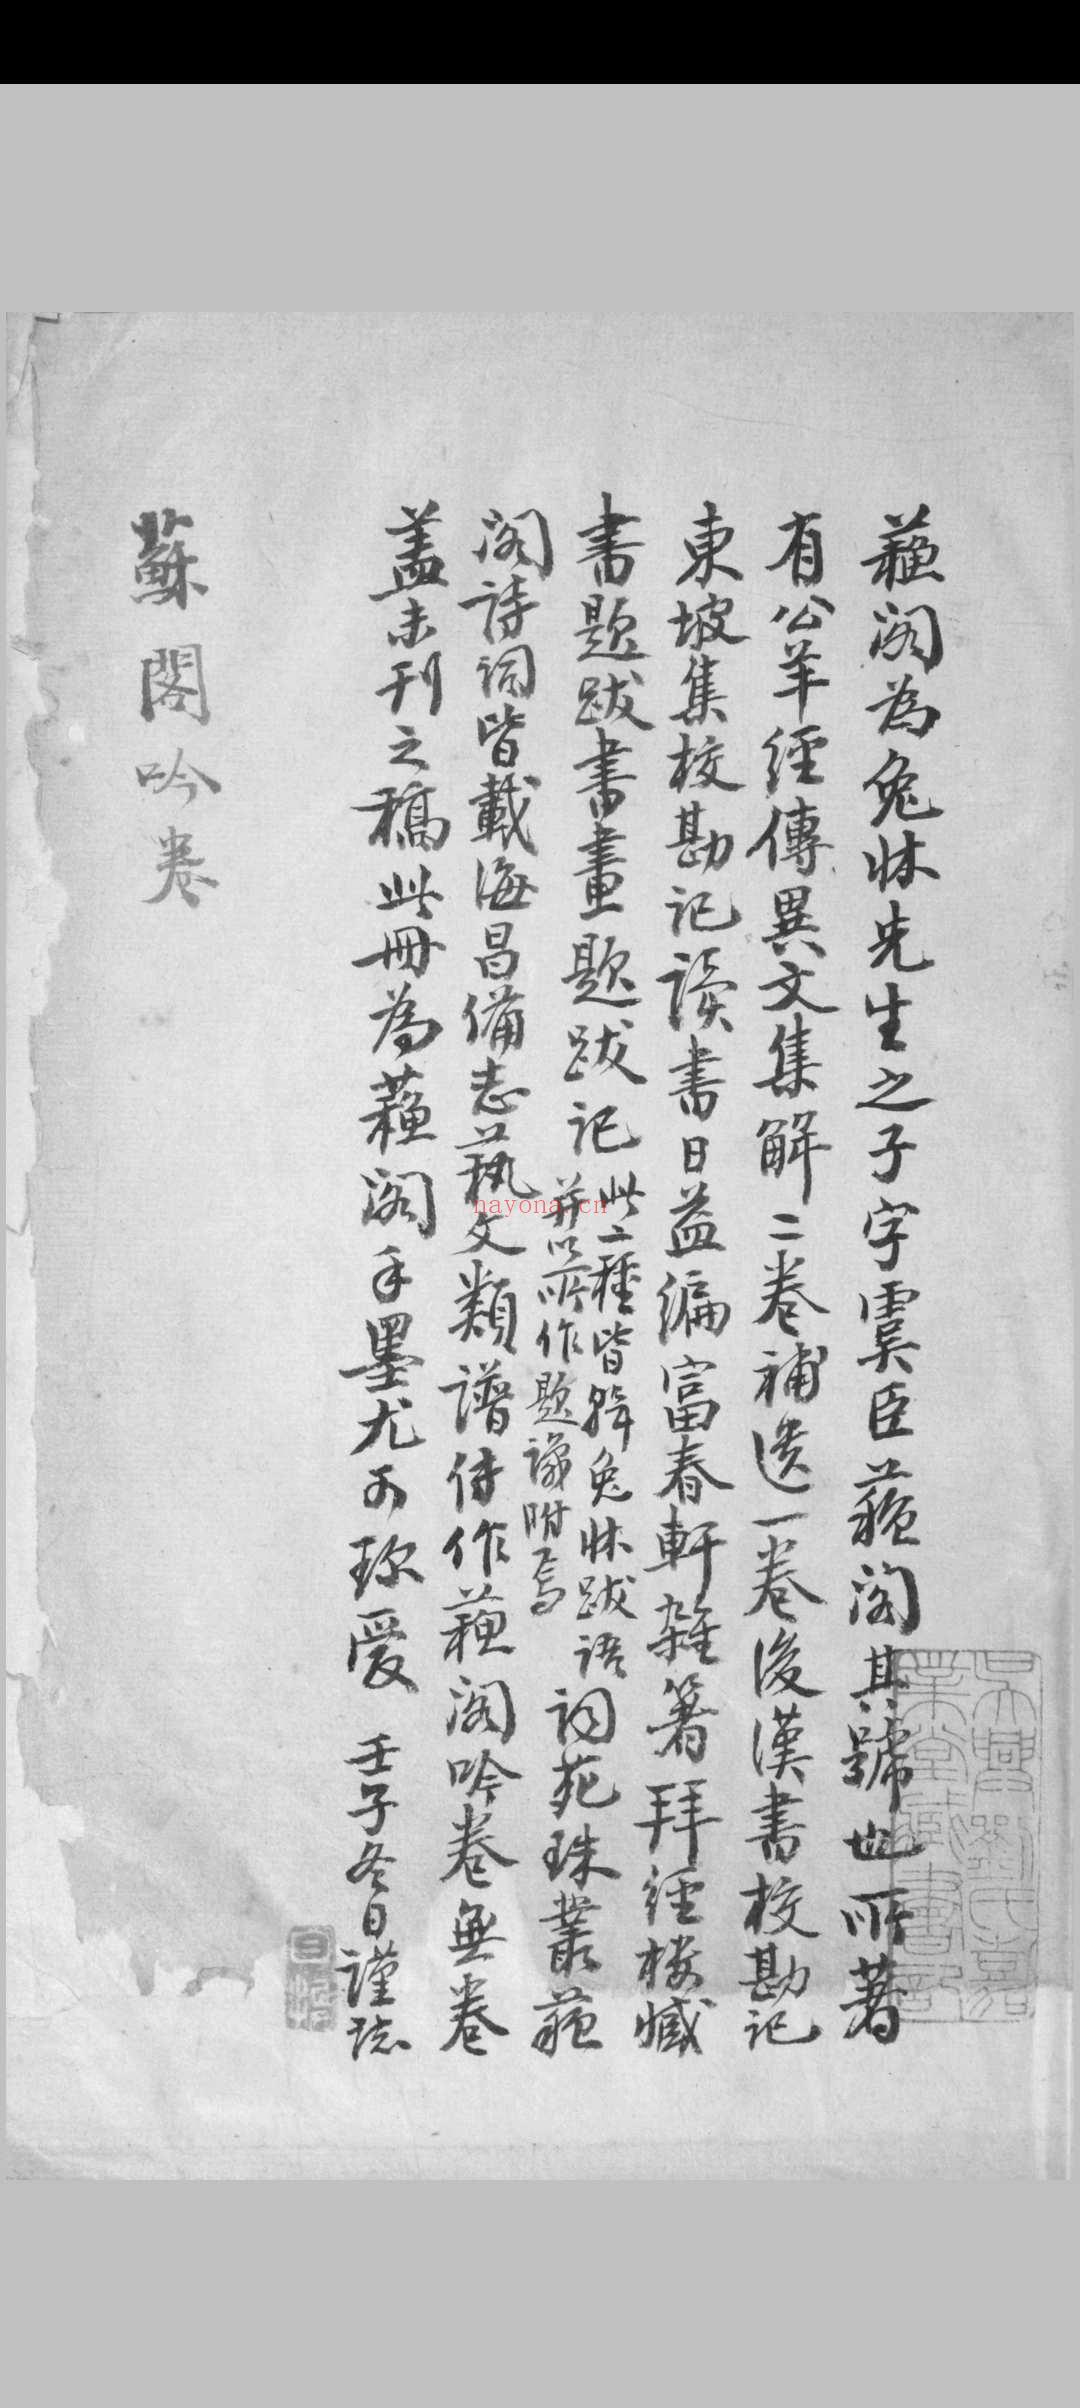 蘓閣為兔牀先生之子字虞臣蘓閣其號也所著
有公羊經傳異文集解二卷補遺一卷後漢書校勘記
東坡集校勘記讀書日益編富春軒雜箸拜經樓藏
書題跋書畫題跋記
此二種皆輯兔牀跋語
并以所作題識附焉
詞苑珠叢蘓
閣詩詞皆載海昌備志藝文類譜傳作蘓閣吟卷無卷
盖未刊之稿此冊為蘓閣手墨尤可珎愛 壬子冬日謹誌
蘇閣吟卷
吳興劉氏嘉
業堂藏書記
nayona.cn